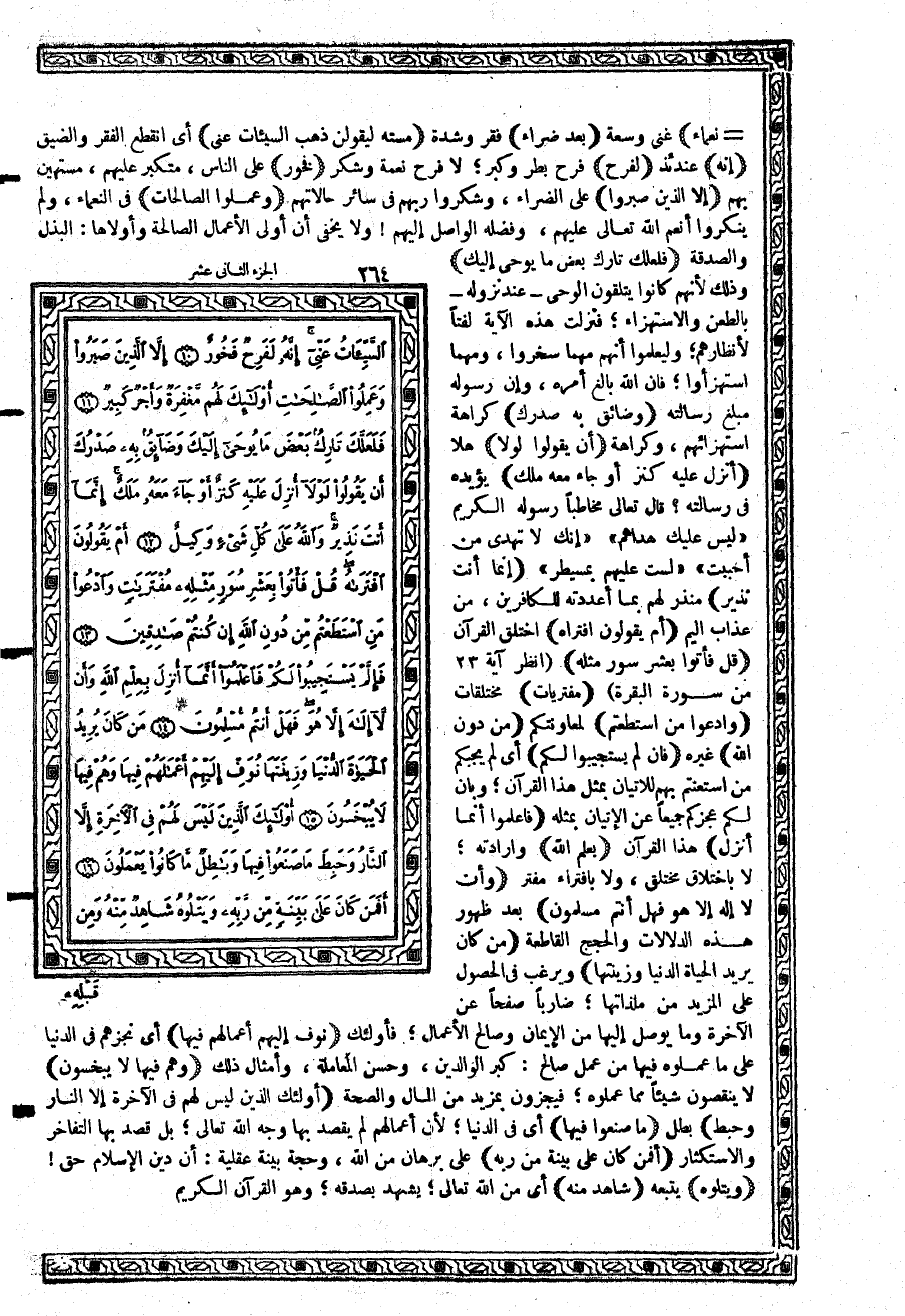 = نعماء) غنى وسعة (بعد ضراء) فقر وشدة (مسته ليقولن ذهب السيئات عنى) أى انقطع الفقر والضيق
(إنه) عندئذ (لفرح) فرح بطر وكبر؛ لا فرح نعمة وشكر (فخور) على الناس، متكبر عليهم، مستهين
بهم (إلا الذين صبروا) على الضراء، وشكروا ربهم فى سائر حالاتهم (وعملوا الصالحات) فى النعماء، ولم
ينكروا أنعم الله تعالى عليهم، وفضله الواصل إليهم! ولا يخفى أن أولى الأعمال الصالحة وأولاها: البذل
والصدقة (فلعلك تارك بعض ما يوحى إليك)
وذلك لأنهم كانوا يتلقون الوحى ـ عند نزوله ـ
بالطعن والاستهزاء؛ فنزلت هذه الآية لفتاً
لأنظارهم؛ وليعلموا أنهم مهما سخروا، ومهما
استهزأوا؛ فان الله بالغ أمره، وإن رسوله
مبلغ رسالته (وضائق به صدرك) كراهة
استهزائهم، وكراهة (أن يقولوا لولا) هلا
(أنزل عليه كنز أو جاء معه ملك) يؤيده
فى رسالته؟ قال تعالى مخاطباً رسوله الكريم
«ليس عليك هداهم» «إنك لا تهدى من
أحببت» «لست عليهم بمسيطر» (إنما أنت
نذير) منذر لهم بما أعددته للكافرين، من
عذاب اليم (أم يقولون افتراه) اختلق القرآن
(قل فأتوا بعشر سور مثله) (انظر آية ٢٣
من سورة البقرة) (مفتريات) مختلقات
(وادعوا من استطعتم) لمعاونتكم (من دون
الله) غيره (فان لم يستجيبوا لكم) أى لم يجبكم
من استعنتم بهم للاتيان بمثل هذا القرآن؛ وبان
لكم عجزكم جميعاً عن الإتيان بمثله (فاعلموا أنما
أنزل) هذا القرآن (بعلم الله) وارادته؛
لا باختلاق مختلق، ولا بافتراء مفتر (وأن
لا إله إلا هو فهل أنتم مسلمون) بعد ظهور
هذه الدلالات والحجج القاطعة (من كان
يريد الحياة الدنيا وزينتها) ويرغب فى الحصول
على المزيد من ملذاتها؛ ضارباً صفحاً عن
الآخرة وما يوصل إليها من الإيمان وصالح الأعمال؛ فأولئك (نوف إليهم أعمالهم فيها) أى نجزهم فى الدنيا
على ما عملوه فيها من عمل صالح: كبر الوالدين، وحسن المعاملة، وأمثال ذلك (وهم فيها لا يبخسون)
لا ينقصون شيئاً مما عملوه؛ فيجزون بمزيد من المال والصحة (أولئك الذين ليس لهم فى الآخرة إلا النار
وحبط) بطل (ما صنعوا فيها) أى فى الدنيا؛ لأن أعمالهم لم يقصد بها وجه الله تعالى؛ بل قصد بها التفاخر
والاستكثار (أفمن كان على بينة من ربه) على برهان من الله، وحجة بينة عقلية: أن دين الإسلام حق!
(ويتلوه) يتبعه (شاهد منه) أى من الله تعالى؛ يشهد بصدقه؛ وهو القرآن الكريم
٢٦٤ الجزء الثانى عشر
ٱلسَّيِّـَٔاتُ عَنِّىٓ إِنَّهُۥ لَفَرِحٌ فَخُورٌ ۝١٠ إِلَّا ٱلَّذِينَ صَبَرُوا۟
وَعَمِلُوا۟ ٱلصَّـٰلِحَـٰتِ أُو۟لَـٰٓئِكَ لَهُم مَّغْفِرَةٌ وَأَجْرٌ كَبِيرٌ ۝١١
فَلَعَلَّكَ تَارِكٌۢ بَعْضَ مَا يُوحَىٰٓ إِلَيْكَ وَضَآئِقٌۢ بِهِۦ صَدْرُكَ
أَن يَقُولُوا۟ لَوْلَآ أُنزِلَ عَلَيْهِ كَنزٌ أَوْ جَآءَ مَعَهُۥ مَلَكٌ ۚ إِنَّمَآ
أَنتَ نَذِيرٌ ۚ وَٱللَّهُ عَلَىٰ كُلِّ شَىْءٍ وَكِيلٌ ۝١٢ أَمْ يَقُولُونَ
ٱفْتَرَىٰهُ ۖ قُلْ فَأْتُوا۟ بِعَشْرِ سُوَرٍ مِّثْلِهِۦ مُفْتَرَيَـٰتٍ وَٱدْعُوا۟
مَنِ ٱسْتَطَعْتُم مِّن دُونِ ٱللَّهِ إِن كُنتُمْ صَـٰدِقِينَ ۝١٣
فَإِلَّمْ يَسْتَجِيبُوا۟ لَكُمْ فَٱعْلَمُوٓا۟ أَنَّمَآ أُنزِلَ بِعِلْمِ ٱللَّهِ وَأَن
لَّآ إِلَـٰهَ إِلَّا هُوَ ۖ فَهَلْ أَنتُم مُّسْلِمُونَ ۝١٤ مَن كَانَ يُرِيدُ
ٱلْحَيَوٰةَ ٱلدُّنْيَا وَزِينَتَهَا نُوَفِّ إِلَيْهِمْ أَعْمَـٰلَهُمْ فِيهَا وَهُمْ فِيهَا
لَا يُبْخَسُونَ ۝١٥ أُو۟لَـٰٓئِكَ ٱلَّذِينَ لَيْسَ لَهُمْ فِى ٱلْـَٔاخِرَةِ إِلَّا
ٱلنَّارُ وَحَبِطَ مَا صَنَعُوا۟ فِيهَا وَبَـٰطِلٌ مَّا كَانُوا۟ يَعْمَلُونَ ۝١٦
أَفَمَن كَانَ عَلَىٰ بَيِّنَةٍ مِّن رَّبِّهِۦ وَيَتْلُوهُ شَاهِدٌ مِّنْهُ وَمِن
قَبْلِهِۦ